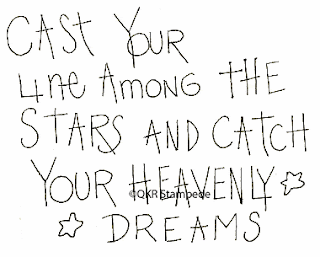 CAST YOUR
LINE AMONG THE
STARS AND CATCH
YOUR HEAVENLY
©QKR Stampede
DREAMS